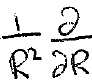 \frac{1}{R^2} \frac{\partial}{\partial R}